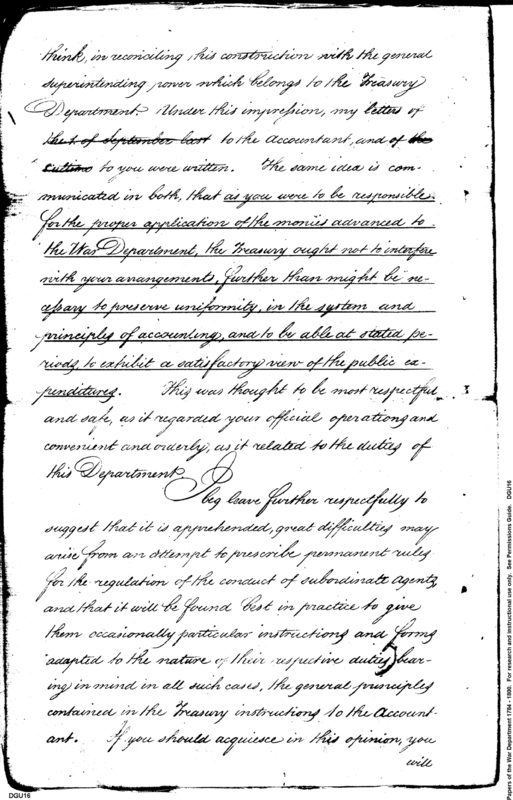 think, in reconciling this construction with the general
superintending power which belongs to the Treasury
Department. Under this impression, my letters of
the 1. of September last to the Accountant, and of the
ultimo to you were written. The same idea is com-
municated in both, that as you were to be responsible
for the proper application of the monies advanced to
the War Department, the Treasury ought not to interfere
with your arrangements, further than might be ne-
cessary to preserve uniformity, in the system and
principles of accounting, and to be able at stated pe-
riods, to exhibit a satisfactory view of the public ex-
penditures. This was thought to be most respectful
and safe, as it regarded your official operations and
convenient and orderly, as it related to the duties of
this Department.
I beg leave further respectfully to
suggest that it is apprehended, great difficulties may
arise from an attempt to prescribe permanent rules
for the regulation of the conduct of subordinate Agents,
and that it will be found best in practice to give
them occasionally particular instructions and forms
adapted to the nature of their respective duties, bear-
ing in mind in all such cases, the general principles
contained in the Treasury instructions to the Account-
ant. If you should acquiesce in this opinion, you
will
DGU16
Papers of the War Department 1784 - 1800. For research and instructional use only. See Permissions Guide. DGU16